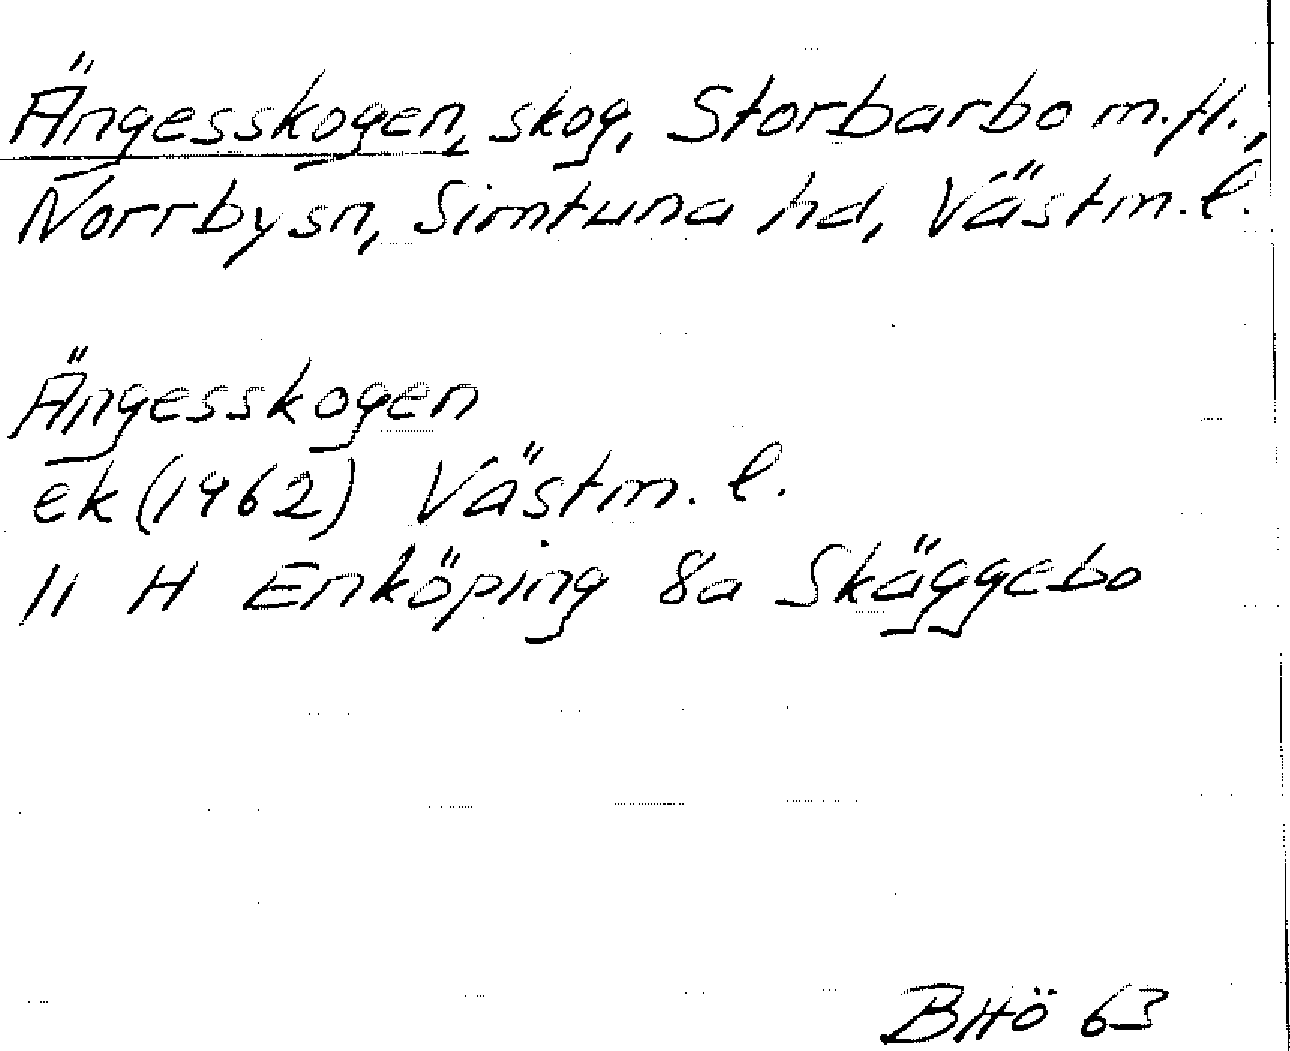 Ängesskogen, skog, Storbarbo m.fl.,
Norrby sn, Simtuna hd, Västm.l.
Ängesskogen
ek (1962) Västm. l.
11 H Enköping 8a Skäggebo
BHÖ 63